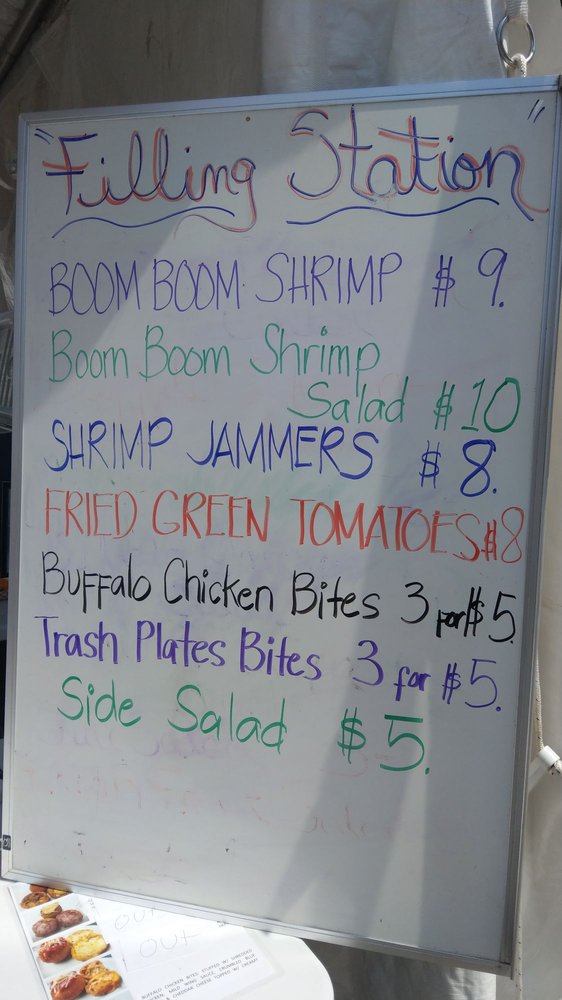 "Filling Station"
BOOM BOOM SHRIMP $9.
Boom Boom Shrimp
Salad $10
SHRIMP JAMMERS $8.
FRIED GREEN TOMATOES $8
Buffalo Chicken Bites 3 for $5.
Trash Plates Bites 3 for $5.
Side Salad $5.
OUT
OUT
BUFFALO CHICKEN BITES STUFFED W/ SHREDDED
CHICKEN, MILD WING SAUCE, CRUMBLED BLUE
& CHEDDAR CHEESE TOPPED W/ CREAMY